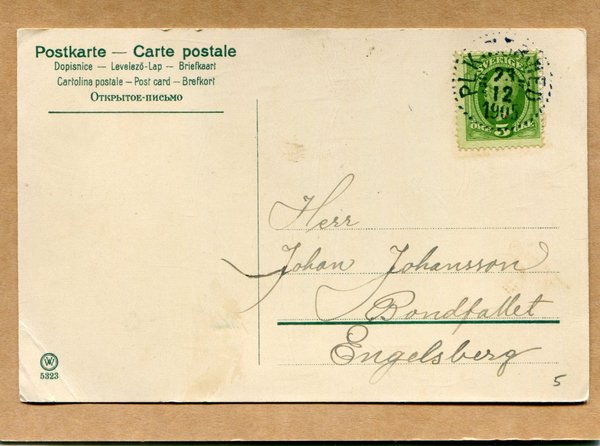 Postkarte — Carte postale
Dopisnice — Levelező-Lap — Briefkaart
Cartolina postale — Post card — Brefkort
Открытое-письмо
SVERIGE
PLK
21
12
1905
5
Herr
Johan Johansson
Bondfallet
Engelsberg
W
5323
5